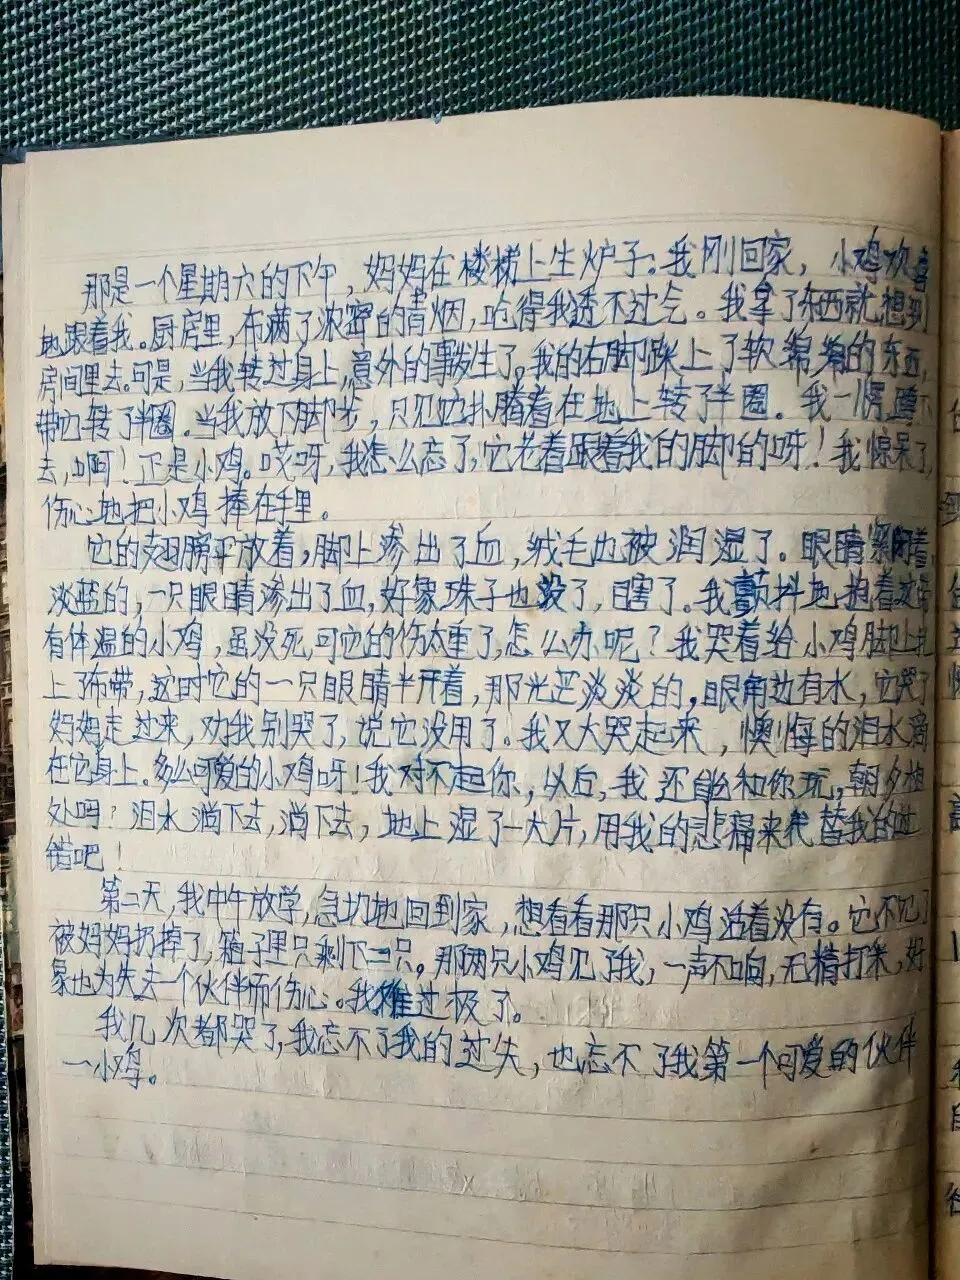 那是一个星期六的下午，妈妈在楼梯上生炉子。我刚回家，小鸡欢喜
地跟着我。厨房里，布满了浓密的青烟，呛得我透不过气。我拿了东西就想到
房间里去。可是，当我转过身上，意外的事发生了，我的右脚踩上了软绵绵的东西，
带它转了半圈。当我放下脚步，只见它扑腾着在地上转了半圈。我一愣蹲下
去，啊！正是小鸡。哎呀，我怎么忘了，它老着跟着我的脚的呀！我惊呆了，
伤心地把小鸡捧在手里。
它的翅膀平放着，脚上渗出了血，绒毛也被润湿了。眼睛紧闭着，
淡蓝的，一只眼睛渗出了血，好象珠子也没了，瞎了。我颤抖地抱着这
有体温的小鸡，虽没死，可它的伤太重了，怎么办呢？我哭着给小鸡脚上扎
上了布带，这时它的一只眼睛半开着，那光芒淡淡的，眼角边有水，它哭了
妈妈走过来，劝我别哭了，说它没用了。我又大哭起来，懊悔的泪水滴
在它身上。多么可爱的小鸡呀！我对不起你，以后，我还能和你玩，朝夕相
处吗？泪水淌下去，淌下去，地上湿了一大片，用我的悲痛来代替我的过
错吧！
第二天，我中午放学，急切地回到家，想看看那只小鸡活着没有。它不见了
被妈妈扔掉了，箱子里只剩下二只。那两只小鸡见了我，一声不响，无精打采，好
象也为失去一个伙伴而伤心。我难过极了。
我几次都哭了，我忘不了我的过失，也忘不了我第一个可爱的伙伴
—小鸡。